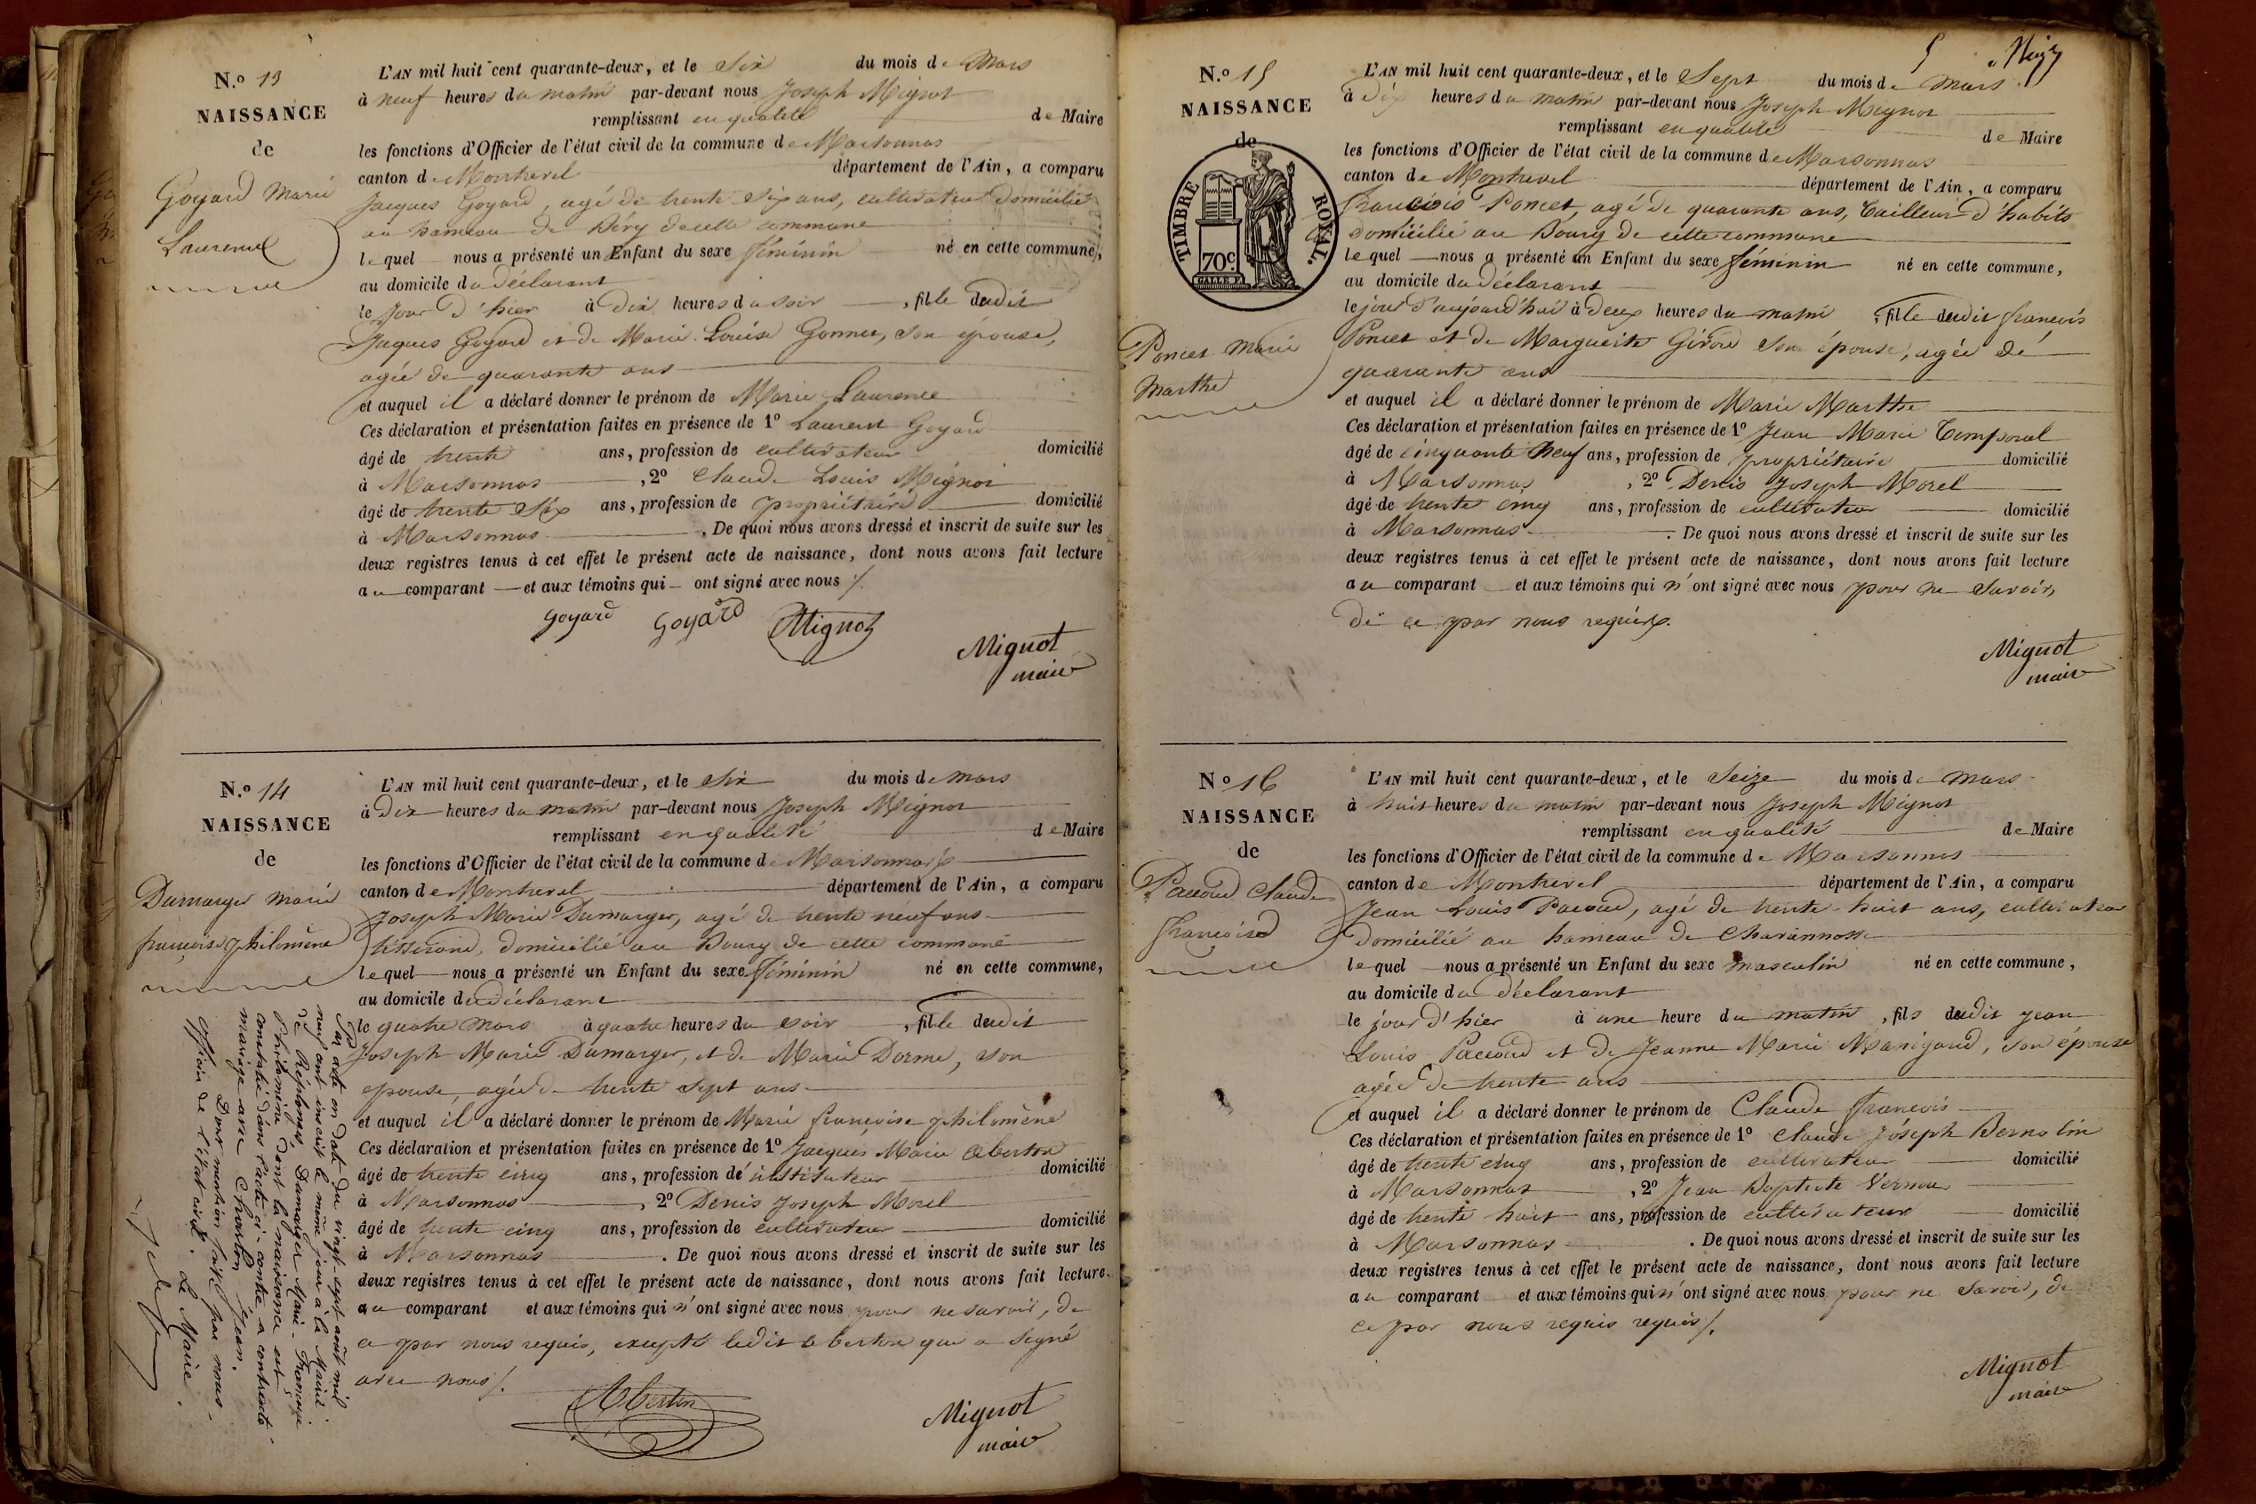 N.o 13
NAISSANCE
de
Goyard Marie
Laurence
L'AN mil huit cent quarante-deux, et le Six du mois de Mars
à neuf heures du matin par-devant nous Joseph Mignot
remplissant en qualité de Maire
les fonctions d'Officier de l'état civil de la commune de Marsonnas
canton de Montrevel département de l'Ain, a comparu
Jacques Goyard, agé de trente Six ans, cultivateur domicilié
au hameau de Béry de cette commune
lequel nous a présenté un Enfant du sexe féminin né en cette commune,
au domicile du déclarant
le Jour d'hier à Dix heures du soir, fille dudit
Jaques Goyard et de Marie Louise Gonnet, son épouse,
agée de quarante ans
et auquel il a déclaré donner le prénom de Marie Laurence
Ces déclaration et présentation faites en présence de 1o Laurent Goyard
âgé de trente ans, profession de cultivateur domicilié
à Marsonnas, 2o Claude Louis Mignot
âgé de trente Six ans, profession de propriétaire domicilié
à Marsonnas. De quoi nous avons dressé et inscrit de suite sur les
deux registres tenus à cet effet le présent acte de naissance, dont nous avons fait lecture
au comparant et aux témoins qui ont signé avec nous /.
goyard goyard Mignot
Mignot
maire
N.o 14
NAISSANCE
de
Damarger Marie
françoise philomène
L'AN mil huit cent quarante-deux, et le Six du mois de mars
à Dix heures du matin par-devant nous Joseph Mignot
remplissant en qualité de Maire
les fonctions d'Officier de l'état civil de la commune de Marsonnas
canton de Montrevel département de l'Ain, a comparu
Joseph Marie Damarger, agé de trente neuf ans
tisserand, domicilié au Bourg de cette commune
lequel nous a présenté un Enfant du sexe féminin né en cette commune,
au domicile du déclarant
le quatre Mars à quatre heures du soir, fille dudit
Joseph Marie Damarger, et de Marie Dorme, son
epouse, agée de trente sept ans
et auquel il a déclaré donner le prénom de Marie françoise philomène
Ces déclaration et présentation faites en présence de 1o Jacques Marie
âgé de trente cinq ans, profession de instituteur domicilié
à Marsonnas, 2o Denis Joseph Morel
âgé de trente cinq ans, profession de cultivateur domicilié
à Marsonnas. De quoi nous avons dressé et inscrit de suite sur les
deux registres tenus à cet effet le présent acte de naissance, dont nous avons fait lecture
au comparant et aux témoins qui n'ont signé avec nous pour ne savoir, de
ce par nous requis, excepté ledit qui a signé
avec nous /.
Mignot
maire
Par acte en date du vingt-sept août mil
neuf cent inscrit le même jour à la Mairie
de Replonges, Damarger Marie-Françoise
Philomène dont la naissance est
constatée dans l'acte ci-contre a contracté
mariage avec Charlon Jean.
Dont mention faite par nous
officier de l'état civil. Le Maire.
5
N.o 15
NAISSANCE
de
TIMBRE ROYAL.
70c
Poncet Marie
Marthe
L'AN mil huit cent quarante-deux, et le Sept du mois de Mars
à dix heures du matin par-devant nous Joseph Mignot
remplissant en qualité de Maire
les fonctions d'Officier de l'état civil de la commune de Marsonnas
canton de Montrevel département de l'Ain, a comparu
François Poncet, agé de quarante ans, tailleur d'habits
domicilié au Bourg de cette commune
lequel nous a présenté un Enfant du sexe féminin né en cette commune,
au domicile du déclarant
le jour d'aujourd'hui à deux heures du matin, fille dudit françois
Poncet et de Marguerite Girod son épouse, agée de
quarante ans
et auquel il a déclaré donner le prénom de Marie Marthe
Ces déclaration et présentation faites en présence de 1o Jean Marie Temporal
âgé de cinquante neuf ans, profession de propriétaire domicilié
à Marsonnas, 2o Denis Joseph Morel
âgé de trente cinq ans, profession de cultivateur domicilié
à Marsonnas. De quoi nous avons dressé et inscrit de suite sur les
deux registres tenus à cet effet le présent acte de naissance, dont nous avons fait lecture
au comparant et aux témoins qui n'ont signé avec nous pour ne savoir,
de ce par nous requis.
Mignot
maire
No 16
NAISSANCE
de
Pacoud Claude
François
L'AN mil huit cent quarante-deux, et le Seize du mois de Mars
à huit heures du matin par-devant nous Joseph Mignot
remplissant en qualité de Maire
les fonctions d'Officier de l'état civil de la commune de Marsonnas
canton de Montrevel département de l'Ain, a comparu
Jean Louis Pacoud, agé de trente-huit ans, cultivateur
domicilié au hameau de
lequel nous a présenté un Enfant du sexe masculin né en cette commune,
au domicile du déclarant
le jour d'hier à une heure du matin, fils dudit Jean
Louis Pacoud et de Jeanne Marie Manigand, son épouse
agée de trente ans
et auquel il a déclaré donner le prénom de Claude François
Ces déclaration et présentation faites en présence de 1o Claude Joseph Bernolin
âgé de trente cinq ans, profession de cultivateur domicilié
à Marsonnas, 2o Jean Baptiste Vernoux
âgé de trente huit ans, profession de cultivateur domicilié
à Marsonnas. De quoi nous avons dressé et inscrit de suite sur les
deux registres tenus à cet effet le présent acte de naissance, dont nous avons fait lecture
au comparant et aux témoins qui n'ont signé avec nous pour ne savoir, de
ce par nous requis requis /.
Mignot
maire